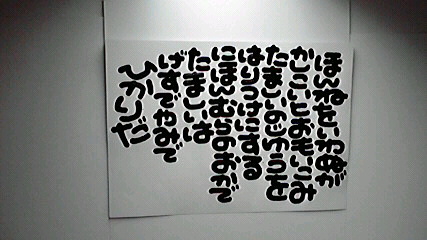 ほんねをいわぬが
かしこいとおもいこみ
たましいのじゆうを
はりつけにする
にほんむらのおかで
たましいは
げすでやみで
ひかりだ